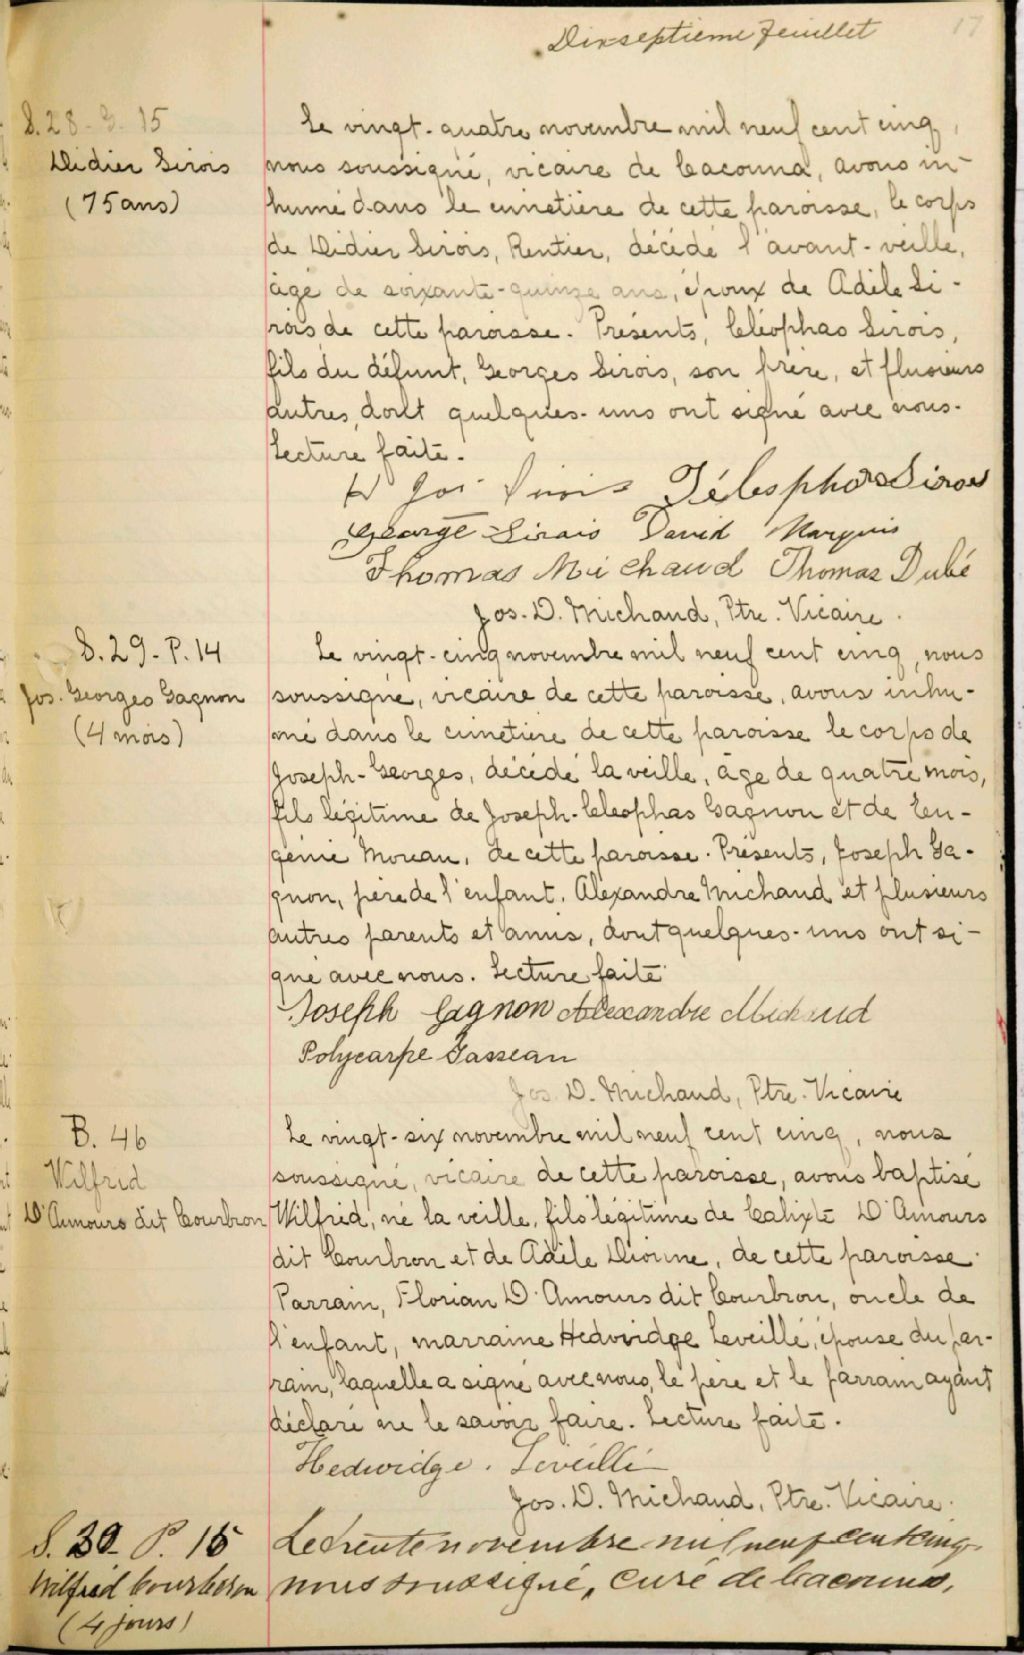 Dixseptième feuillet
17
S. 28 - G. 15
Didier Sirois
(75 ans)
Le vingt-quatre novembre mil neuf cent cinq,
nous soussigné, vicaire de Cacouna, avons in-
humé dans le cimetière de cette paroisse, le corps
de Didier Sirois, Rentier, décédé l'avant-veille,
âgé de soixante-quinze ans, époux de Adèle Si-
rois de cette paroisse. Présents, Cléophas Sirois,
fils du défunt, Georges Sirois, son frère, et plusieurs
autres, dont quelques-uns ont signé avec nous.
Lecture faite.
Jos Sirois Télesphore Sirois
George Sirois David Marquis
Thomas Michaud Thomas Dubé
Jos. D. Michaud, Ptre. Vicaire.
S. 29 - P. 14
Jos. Georges Gagnon
(4 mois)
Le vingt-cinq novembre mil neuf cent cinq, nous
soussigné, vicaire de cette paroisse, avons inhu-
mé dans le cimetière de cette paroisse le corps de
Joseph-Georges, décédé la veille, âgé de quatre mois,
fils légitime de Joseph-Cléophas Gagnon et de Eu-
génie Moreau, de cette paroisse. Présents, Joseph Ga-
gnon, père de l'enfant, Alexandre Michaud et plusieurs
autres parents et amis, dont quelques-uns ont si-
gné avec nous. Lecture faite
Joseph Gagnon Alexandre Michaud
Polycarpe Gasseau
Jos. D. Michaud, Ptre. Vicaire
B. 46
Wilfrid
D'Amours dit Courbron
Le vingt-six novembre mil neuf cent cinq, nous
soussigné, vicaire de cette paroisse, avons baptisé
Wilfrid, né la veille, fils légitime de Calixte D'Amours
dit Courbron et de Adèle Dionne, de cette paroisse.
Parrain, Florian D'Amours dit Courbron, oncle de
l'enfant, marraine Hedwidge Leveillé, épouse du par-
rain, laquelle a signé avec nous, le père et le parrain ayant
déclaré ne le savoir faire. Lecture faite.
Hedwidge. Léveillé
Jos. D. Michaud, Ptre. Vicaire.
S. 30 - P. 15
Wilfrid Courberon
(4 jours)
Le trente novembre mil neuf cent cinq
nous soussigné, curé de Cacouna,